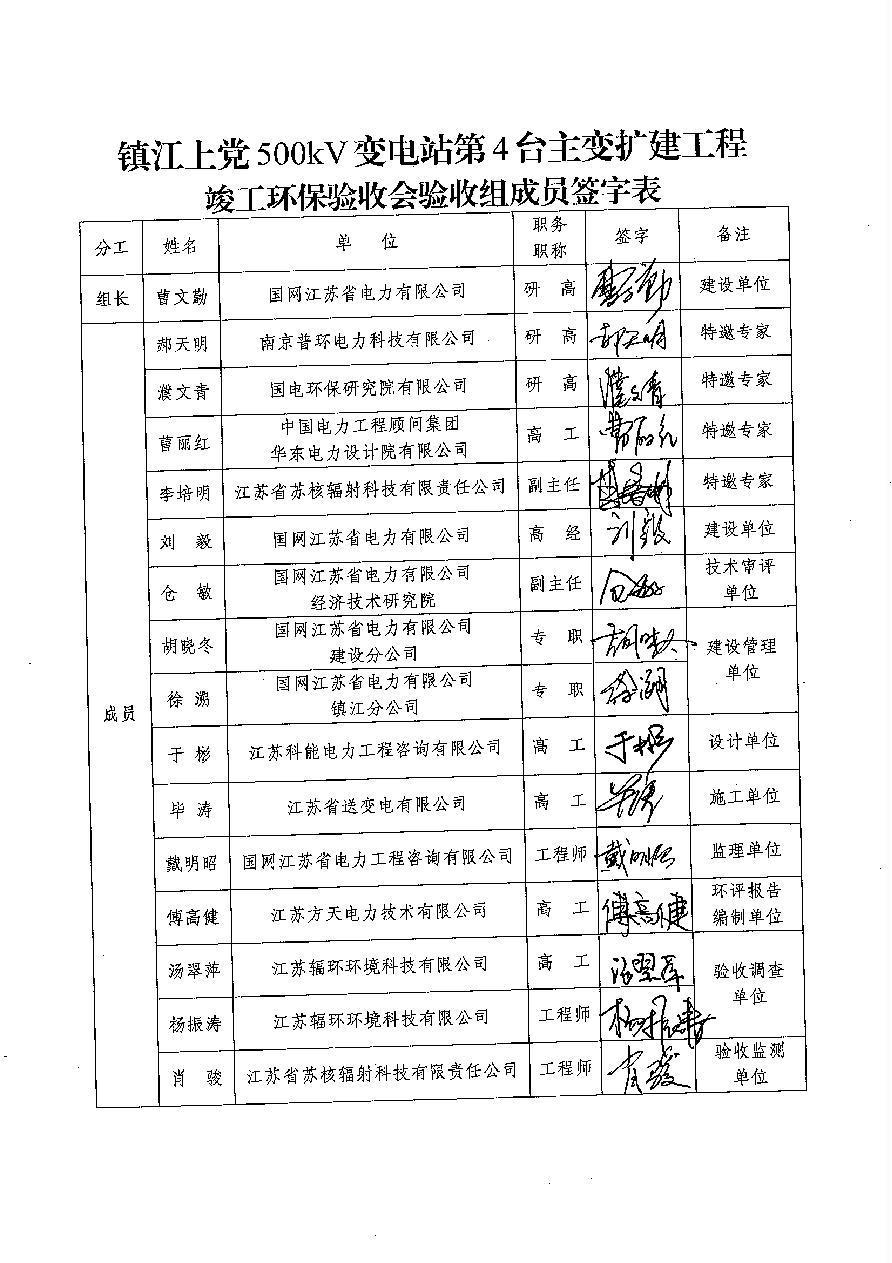 镇江上党500kV变电站第4台主变扩建工程
竣工环保验收会验收组成员签字表
分工 姓名 单 位 职务 职称 签字 备注
组长 曹文勤 国网江苏省电力有限公司 研 高 曹文勤 建设单位
成员
郝天明 南京普环电力科技有限公司 研 高 郝天明 特邀专家
濮文青 国电环保研究院有限公司 研 高 濮文青 特邀专家
曹丽红 中国电力工程顾问集团 华东电力设计院有限公司 高 工 曹丽红 特邀专家
李培明 江苏省苏核辐射科技有限责任公司 副主任 特邀专家
刘 毅 国网江苏省电力有限公司 高 经 刘毅 建设单位
仓 敏 国网江苏省电力有限公司 经济技术研究院 副主任 仓敏 技术审评 单位
胡晓冬 国网江苏省电力有限公司 建设分公司 专 职 胡晓冬 建设管理 单位
徐 溯 国网江苏省电力有限公司 镇江分公司 专 职 徐溯
于 彬 江苏科能电力工程咨询有限公司 高 工 于彬 设计单位
毕 涛 江苏省送变电有限公司 高 工 毕涛 施工单位
戴明昭 国网江苏省电力工程咨询有限公司 工程师 戴明昭 监理单位
傅高健 江苏方天电力技术有限公司 高 工 傅高健 环评报告 编制单位
汤翠萍 江苏辐环环境科技有限公司 高 工 汤翠萍 验收调查 单位
杨振涛 江苏辐环环境科技有限公司 工程师 杨振涛
肖 骏 江苏省苏核辐射科技有限责任公司 工程师 肖骏 验收监测 单位